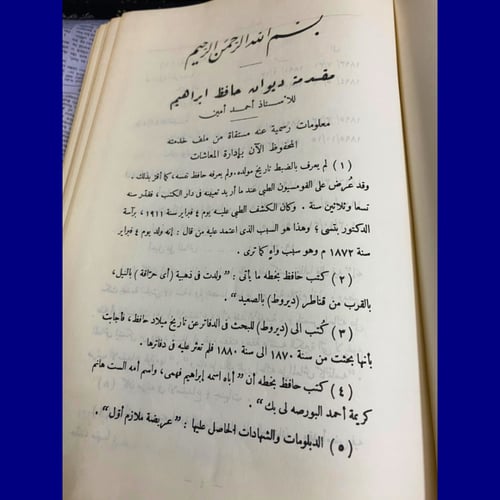 بسم الله الرحمن الرحيم
مقدمة ديوان حافظ ابراهيم
للأستاذ أحمد أمين
معلومات رسمية عنه مستقاة من ملف خدمته
المحفوظ الآن بإدارة المعاشات
(١) لم يعرف بالضبط تاريخ مولده، ولم يعرفه حافظ نفسه، كما أقرّ بذلك.
وقد عُرض على القومسيون الطبي عند ما أريد تعيينه فى دار الكتب، فقدّر سنه
تسعا وثلاثين سنة. وكان الكشف الطبي عليه يوم ٤ فبراير سنة ١٩١١، برآسة
الدكتور بتسى؛ وهذا هو السبب الذى اعتمد عليه من قال: إنه ولد يوم ٤ فبراير
سنة ١٨٧٢ م وهو سبب واهٍ كما ترى.
(٢) كتب حافظ بخطه ما يأتى: "ولدت فى ذهبية (أى حرّاقة) بالنيل،
بالقرب من قناطر (ديروط) بالصعيد".
(٣) كُتب الى (ديروط) للبحث فى الدفاتر عن تاريخ ميلاد حافظ، فأجابت
بأنها بحثت من سنة ١٨٧٠ الى سنة ١٨٨٠ فلم تعثر عليه فى دفاترها.
(٤) كتب حافظ بخطه أن "أباه اسمه إبراهيم فهمى، واسم أمه الست هانم
كريمة أحمد البورصه لى بك".
(٥) الدبلومات والشهادات الحاصل عليها: "عريضة ملازم أوّل".